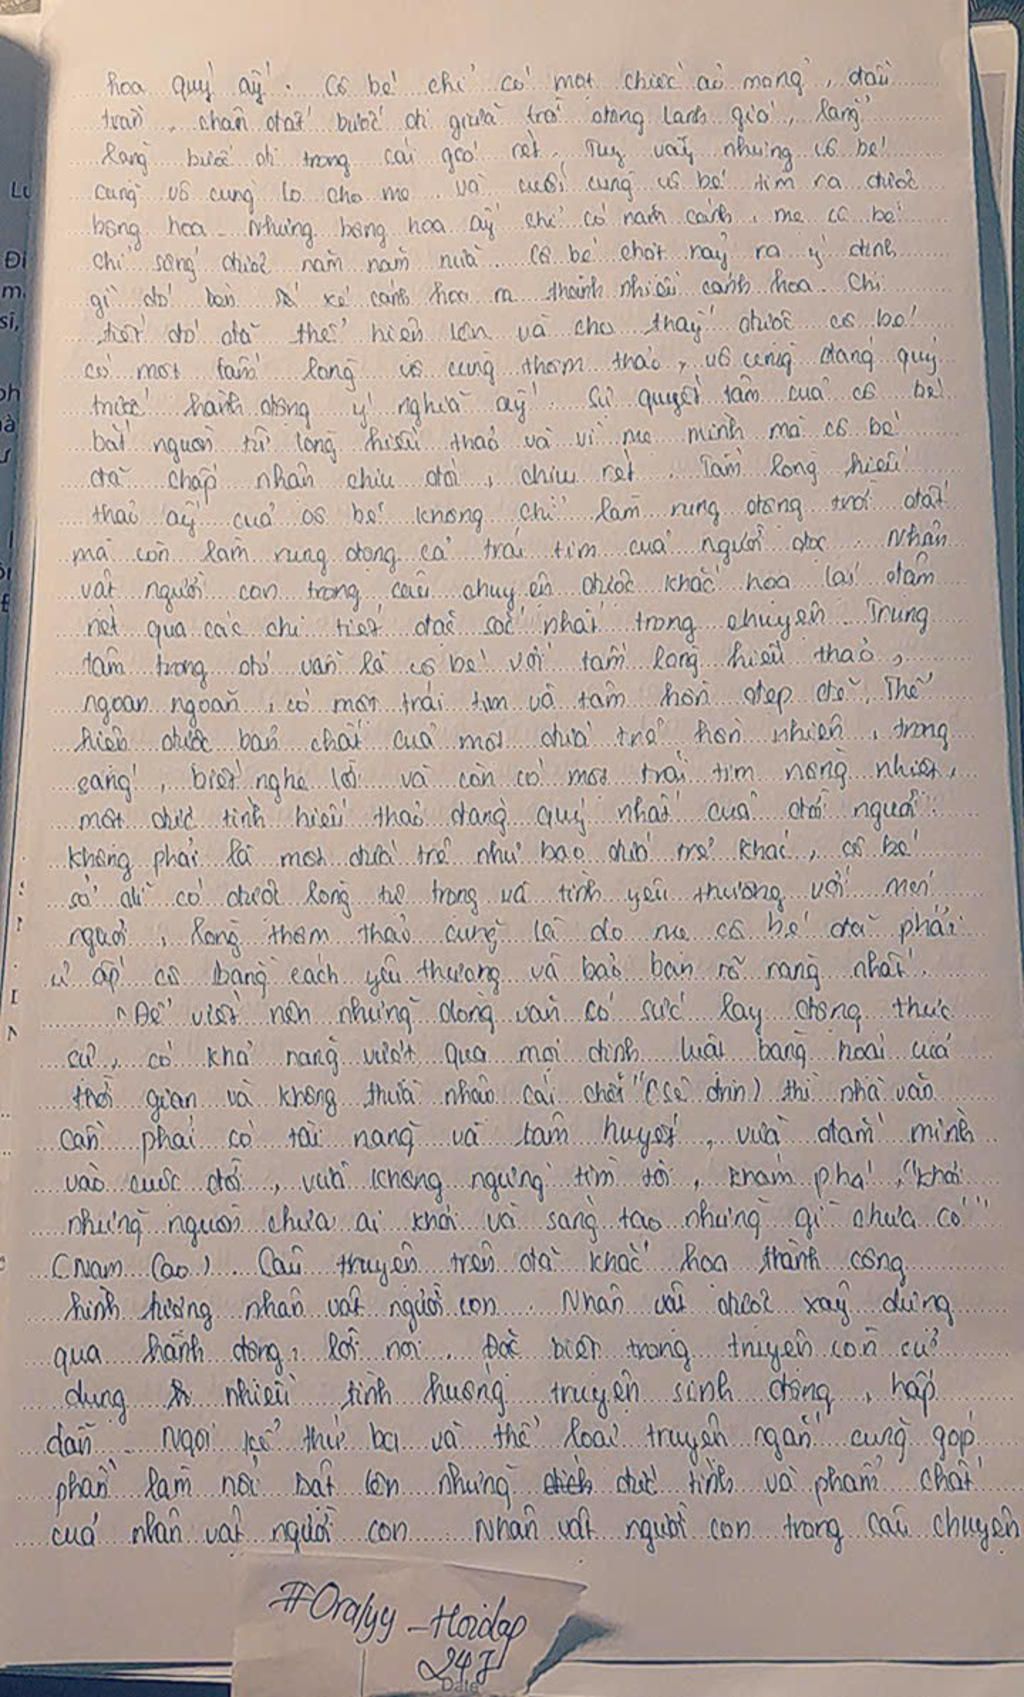 hoa quý ấy. Cô bé chỉ có một chiếc áo mỏng, đầu
trần, chân đất bước đi giữa trời đông lạnh giá, lẳng
lặng bước đi trong cái gió rét. Tuy vậy nhưng cô bé
cũng vô cùng lo cho mẹ và cuối cùng cô bé tìm ra được
bông hoa. Nhưng bông hoa ấy chỉ có năm cánh, mẹ cô bé
chỉ sống được năm năm nữa. Cô bé chợt nảy ra ý định
gì đó bèn sẽ xé cánh hoa ra thành nhiều cánh hoa. Chi
tiết đó đã thể hiện lên và cho thấy được cô bé
có một tấm lòng vô cùng thơm thảo, vô cùng đáng quý
trước hành động ý nghĩa ấy. Sự quyết tâm của cô bé
bắt nguồn từ lòng hiếu thảo và vì mẹ mình mà cô bé
đã chấp nhận chịu đói, chịu rét. Tấm lòng hiếu
thảo ấy của cô bé không chỉ làm rung động trời đất
mà còn làm rung động cả trái tim của người đọc. Nhân
vật người con trong câu chuyện được khắc họa lại đậm
nét qua các chi tiết đặc sắc nhất trong chuyện. Trung
tâm trong đó vẫn là cô bé với tấm lòng hiếu thảo,
ngoan ngoãn, có một trái tim và tâm hồn đẹp đẽ. Thể
hiện được bản chất của một đứa trẻ hồn nhiên, trong
sáng, biết nghe lời và còn có một trái tim nồng nhiệt,
một đức tính hiếu thảo đáng quý nhất của đời người.
Không phải là một đứa trẻ như bao đứa trẻ khác, cô bé
sở dĩ có được lòng tự trọng và tình yêu thương với mọi
người, lòng thơm thảo cũng là do mẹ cô bé đã phải
ủ ấp cô bằng cách yêu thương và bảo ban rõ ràng nhất.
"Để viết nên những dòng văn có sức lay động thực
sự, có khả năng vượt qua mọi định luật băng hoại của
thời gian và không thừa nhận cái chết" (Sê đrin) thì nhà văn
cần phải có tài năng và tâm huyết, vừa đắm mình
vào cuộc đời, vừa không ngừng tìm tòi, khám phá, "khơi
những nguồn chưa ai khơi và sáng tạo những gì chưa có"
(Nam Cao). Câu truyện trên đã khắc họa thành công
hình tượng nhân vật người con. Nhân vật được xây dựng
qua hành động, lời nói. Đặc biệt trong truyện còn sử
dụng nhiều tình huống truyện sinh động, hấp
dẫn. Ngôi kể thứ ba và thể loại truyện ngắn cũng góp
phần làm nổi bật lên những đức tính và phẩm chất
của nhân vật người con. Nhân vật người con trong câu chuyện
#Oralyy_Hoidap
247
Date